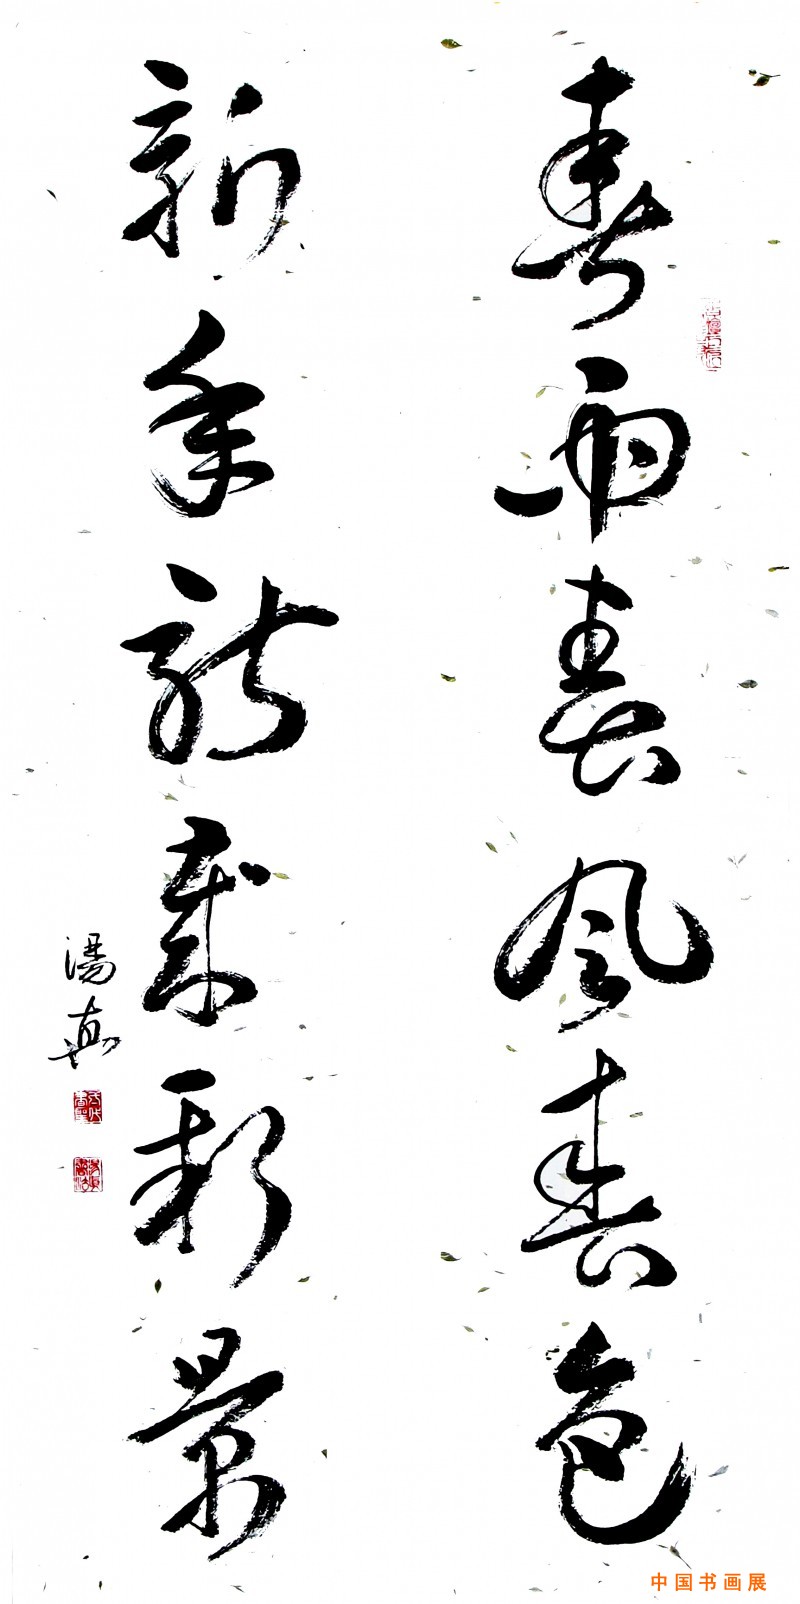 春雨春风春色
新年新岁新景
汤真
中国书画展